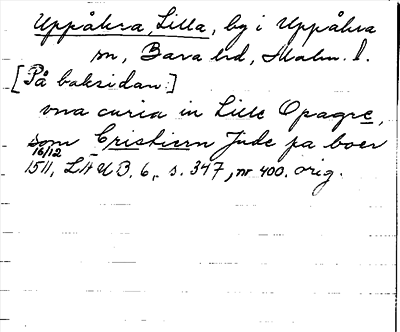 Uppåkra, Lilla, by i Uppåkra
sn, Bara hd, Malm. l.
[På baksidan:]
vna curia in Lille Opagre,
som Cristiern Jude pa boer
16/12
1511, LÄUB. 6, s. 347, nr 400. orig.